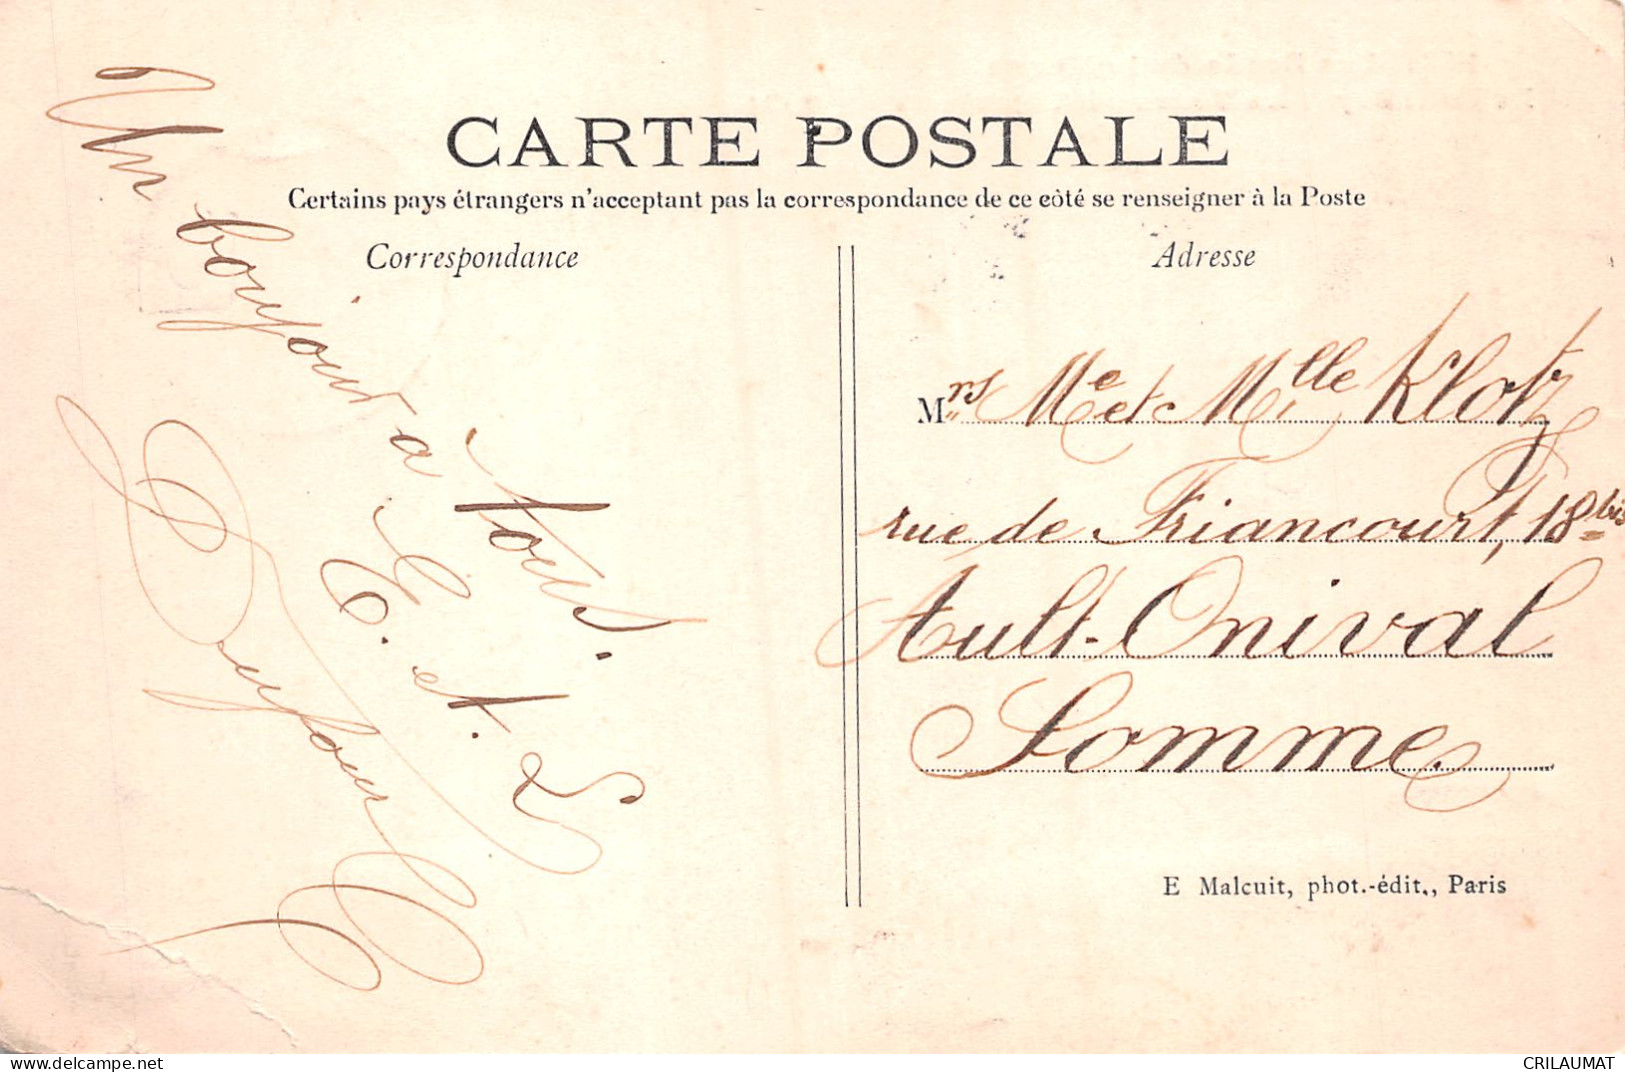 CARTE POSTALE
Certains pays étrangers n'acceptant pas la correspondance de ce côté se renseigner à la Poste
Correspondance
Un bonjour à
tous.
E. et. L
Dufour
Adresse
Mrs Me et Mlle Klotz
rue de Friancourt, 18 bis
Ault-Onival
Somme
E Malcuit, phot.-édit., Paris
www.delcampe.net
CRILAUMAT